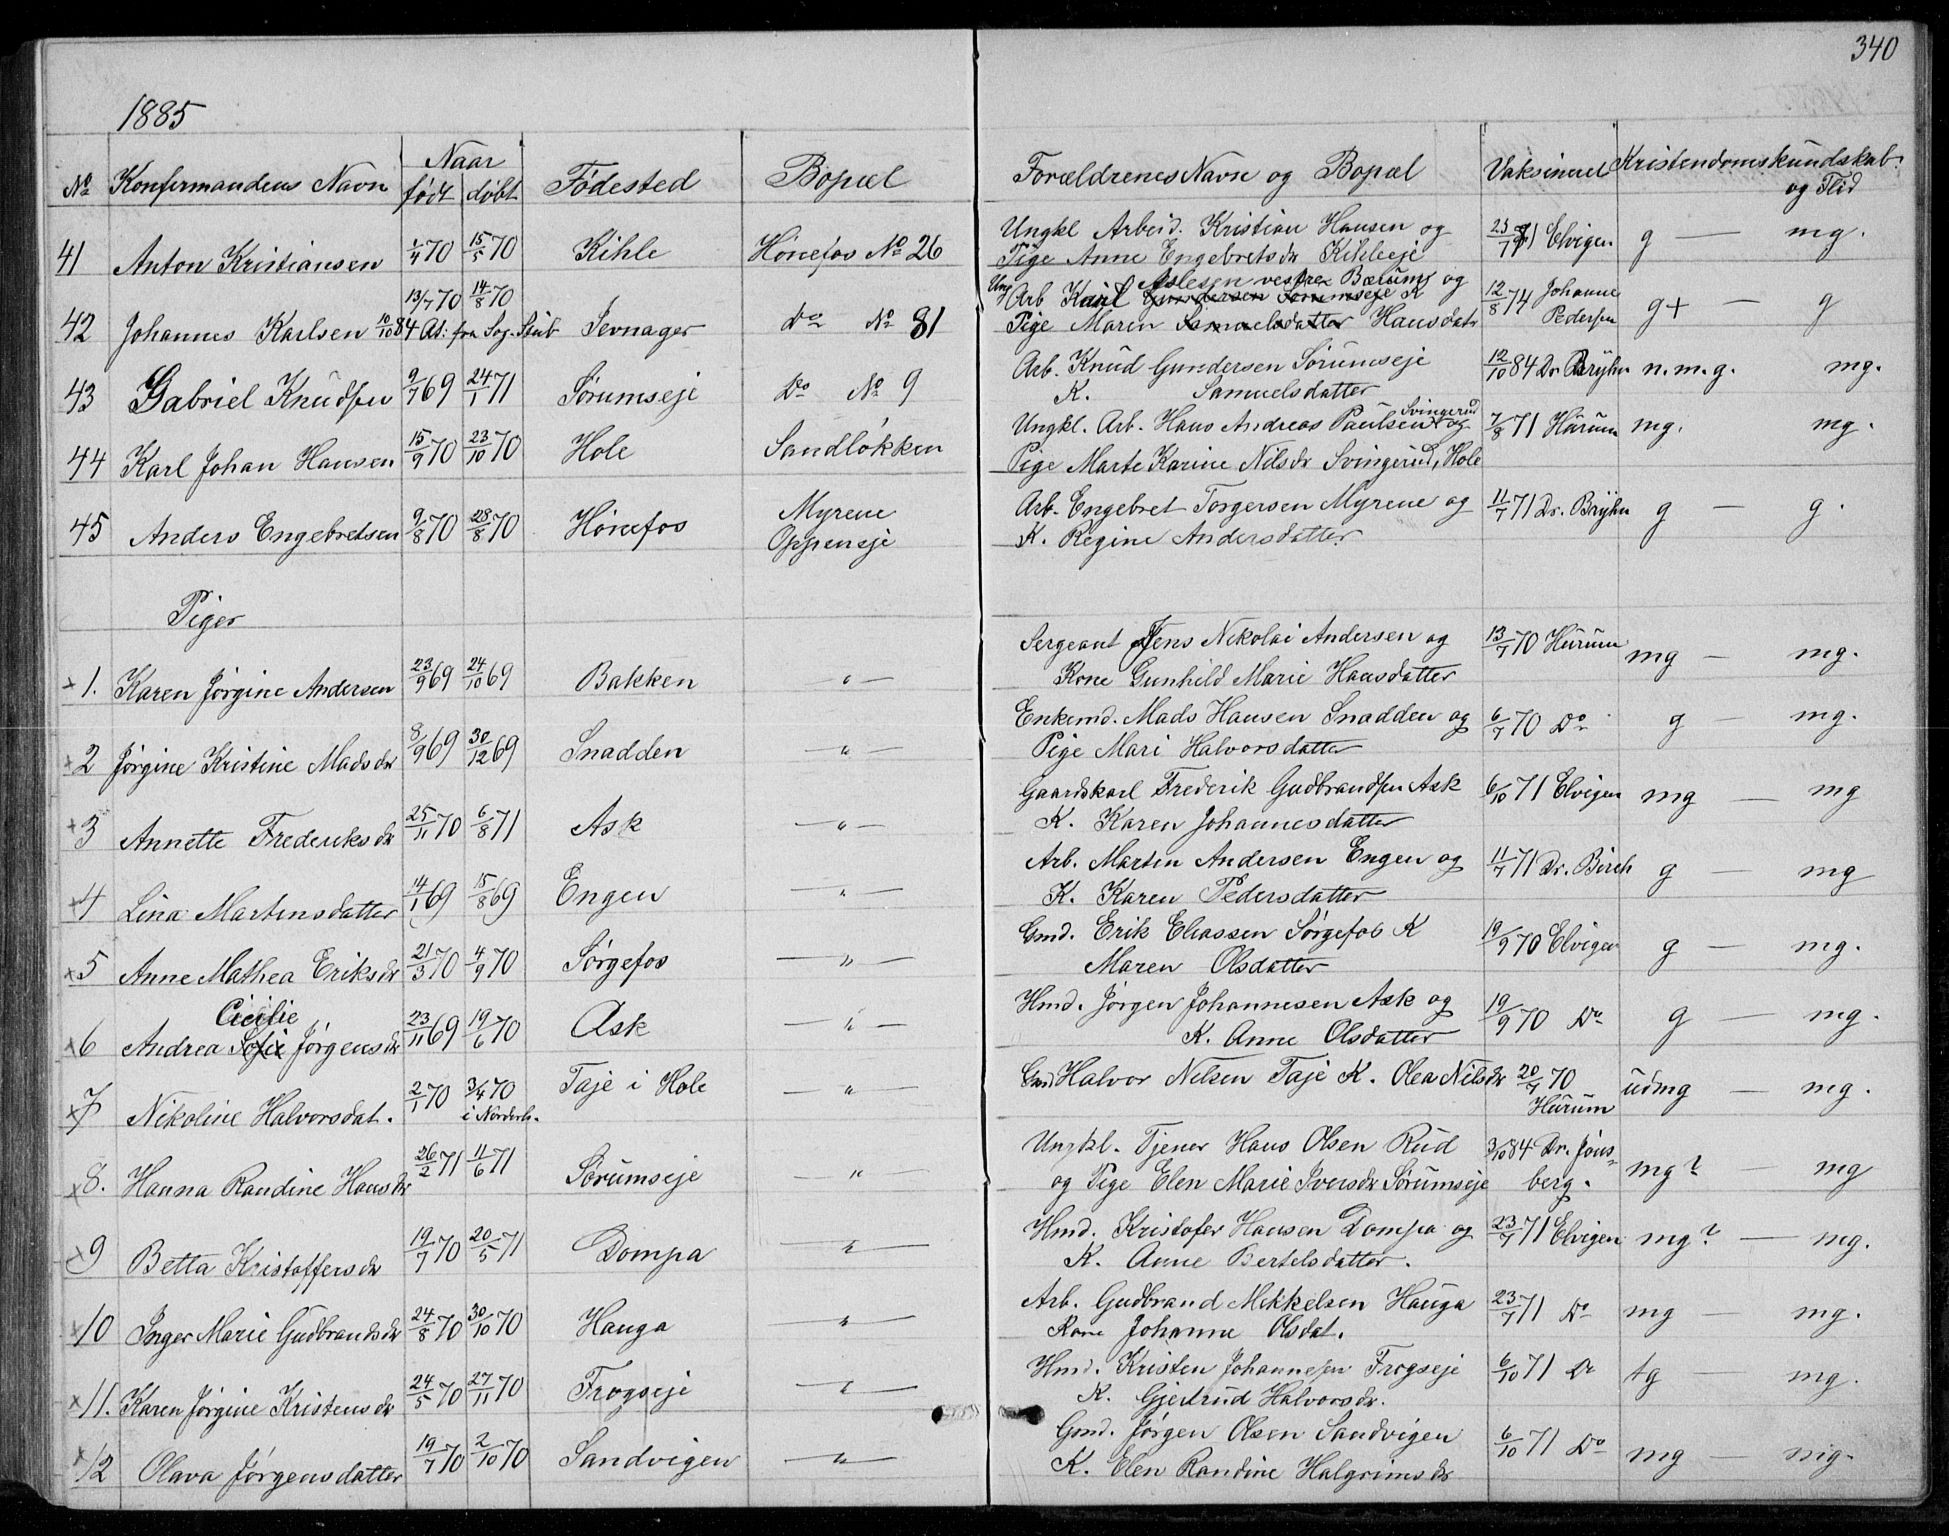 340
1885
No Konfirmandens Navn Naar født døbt Fødested Bopæl Forældrenes Navn og Bopæl Vaksineret Kristendomskundskab og Flid
41 Anton Kristiansen 1/4 70 15/5 70 Kihle Hønefos No 26 Ungkl Arbeid. Kristian Hansen og 23/7 71 Elvigen g — mg.
Pige Anne Engebretsdr Kihleeje
42 Johannes Karlsen 10/10 84 At. fra Sog. Skib 13/7 70 14/8 70 Sevnager Do No 81 Ung Arb Karl Aslesen vestre Bærum og 12/8 74 Johanne Pedersen g+ — g
Gundersen Sørumseje K
Pige Maren Samuelsdatter Hansdatr
43 Gabriel Knudsen 9/7 69 24/1 71 Sørumseje Do No 9 Arb. Knud Gundersen Sørumseje 12/10 84 Dr. Bryhn n.m.g. mg.
K. Samuelsdatter
44 Karl Johan Hansen 15/9 70 23/10 70 Hole Sandløkken Ungkl. Arb. Hans Andreas Paulsen Svingerud og 7/8 71 Hurum mg. mg.
Pige Marte Karine Nilsdr Svingerud, Hole
45 Anders Engebretsen 9/8 70 28/8 70 Hønefos Myrene Arb. Engebret Torgersen Myrene og 11/7 71 Dr. Bryhn g — g.
Oppeneje K. Regine Andersdatter
Piger
1. Karen Jørgine Andersen 23/9 69 24/10 69 Bakken — " — Sergeant Jens Nikolai Andersen og 13/7 70 Hurum mg — mg.
Kone Gunhild Marie Hansdatter
2 Jørgine Kristine Madsdr 8/9 69 30/12 69 Snadden — " — Enkemd. Mads Hansen Snadden og 6/7 70 Do g — mg.
Pige Mari Halvorsdatter
3 Annette Frederiksdr 25/11 70 6/8 71 Ask — " — Gaardskarl Frederik Gudbrandsen Ask 6/10 71 Elvigen mg — mg
K. Karen Johannesdatter
4 Lina Martinsdatter 14/1 69 15/8 69 Engen — " — Arb. Martin Andersen Engen og 11/7 71 Dr. Birch g — mg
K. Karen Pedersdatter
5 Anne Mathea Eriksdr 21/3 70 4/9 70 Sørgefos — " — Gmd. Erik Eliassen Sørgefos K 19/9 70 Elvigen g — mg.
Maren Olsdatter
Cicilie
6 Andrea Sofie Jørgensdr 23/11 69 19/6 70 Ask — " — Hmd. Jørgen Johannesen Ask og 19/9 70 Do g — mg.
K. Anne Olsdatter
7 Nikoline Halvorsdat. 2/1 70 3/4 70 i Norderh. Taje i Hole — " — Gmd Halvor Nilsen Taje K. Olea Nilsdr 20/7 70 Hurum udmg — mg.
8. Hanna Randine Hansdr 26/2 71 11/6 71 Sørumseje " Ungkl. Tjener Hans Olsen Rud 3/10 84 Dr. Jønsberg. mg? — mg
og Pige Elen Marie Iversdr Sørumseje
9 Betta Kristoffersdr 19/7 70 20/5 71 Dompa — " — Hmd. Kristofer Hansen Dompa og 23/7 71 Elvigen mg? — mg.
K. Anne Bertelsdatter.
10 Inger Marie Gudbrandsdr 24/8 70 30/10 70 Hauga — " — Arb. Gudbrand Mikkelsen Hauga 23/7 71 Do mg — mg.
Kone Johanne Olsdat.
11. Karen Jørgine Kristensdr 24/5 70 27/11 70 Frogseje — " — Hmd. Kristen Johannesen Frogseje 6/10 71 Do tg — mg.
K. Gjertrud Halvorsdr.
12 Olava Jørgensdatter 19/7 70 2/10 70 Sandvigen — " — Gmd. Jørgen Olsen Sandvigen 6/10 71 Do mg — mg.
K. Elen Randine Halgrimsdr